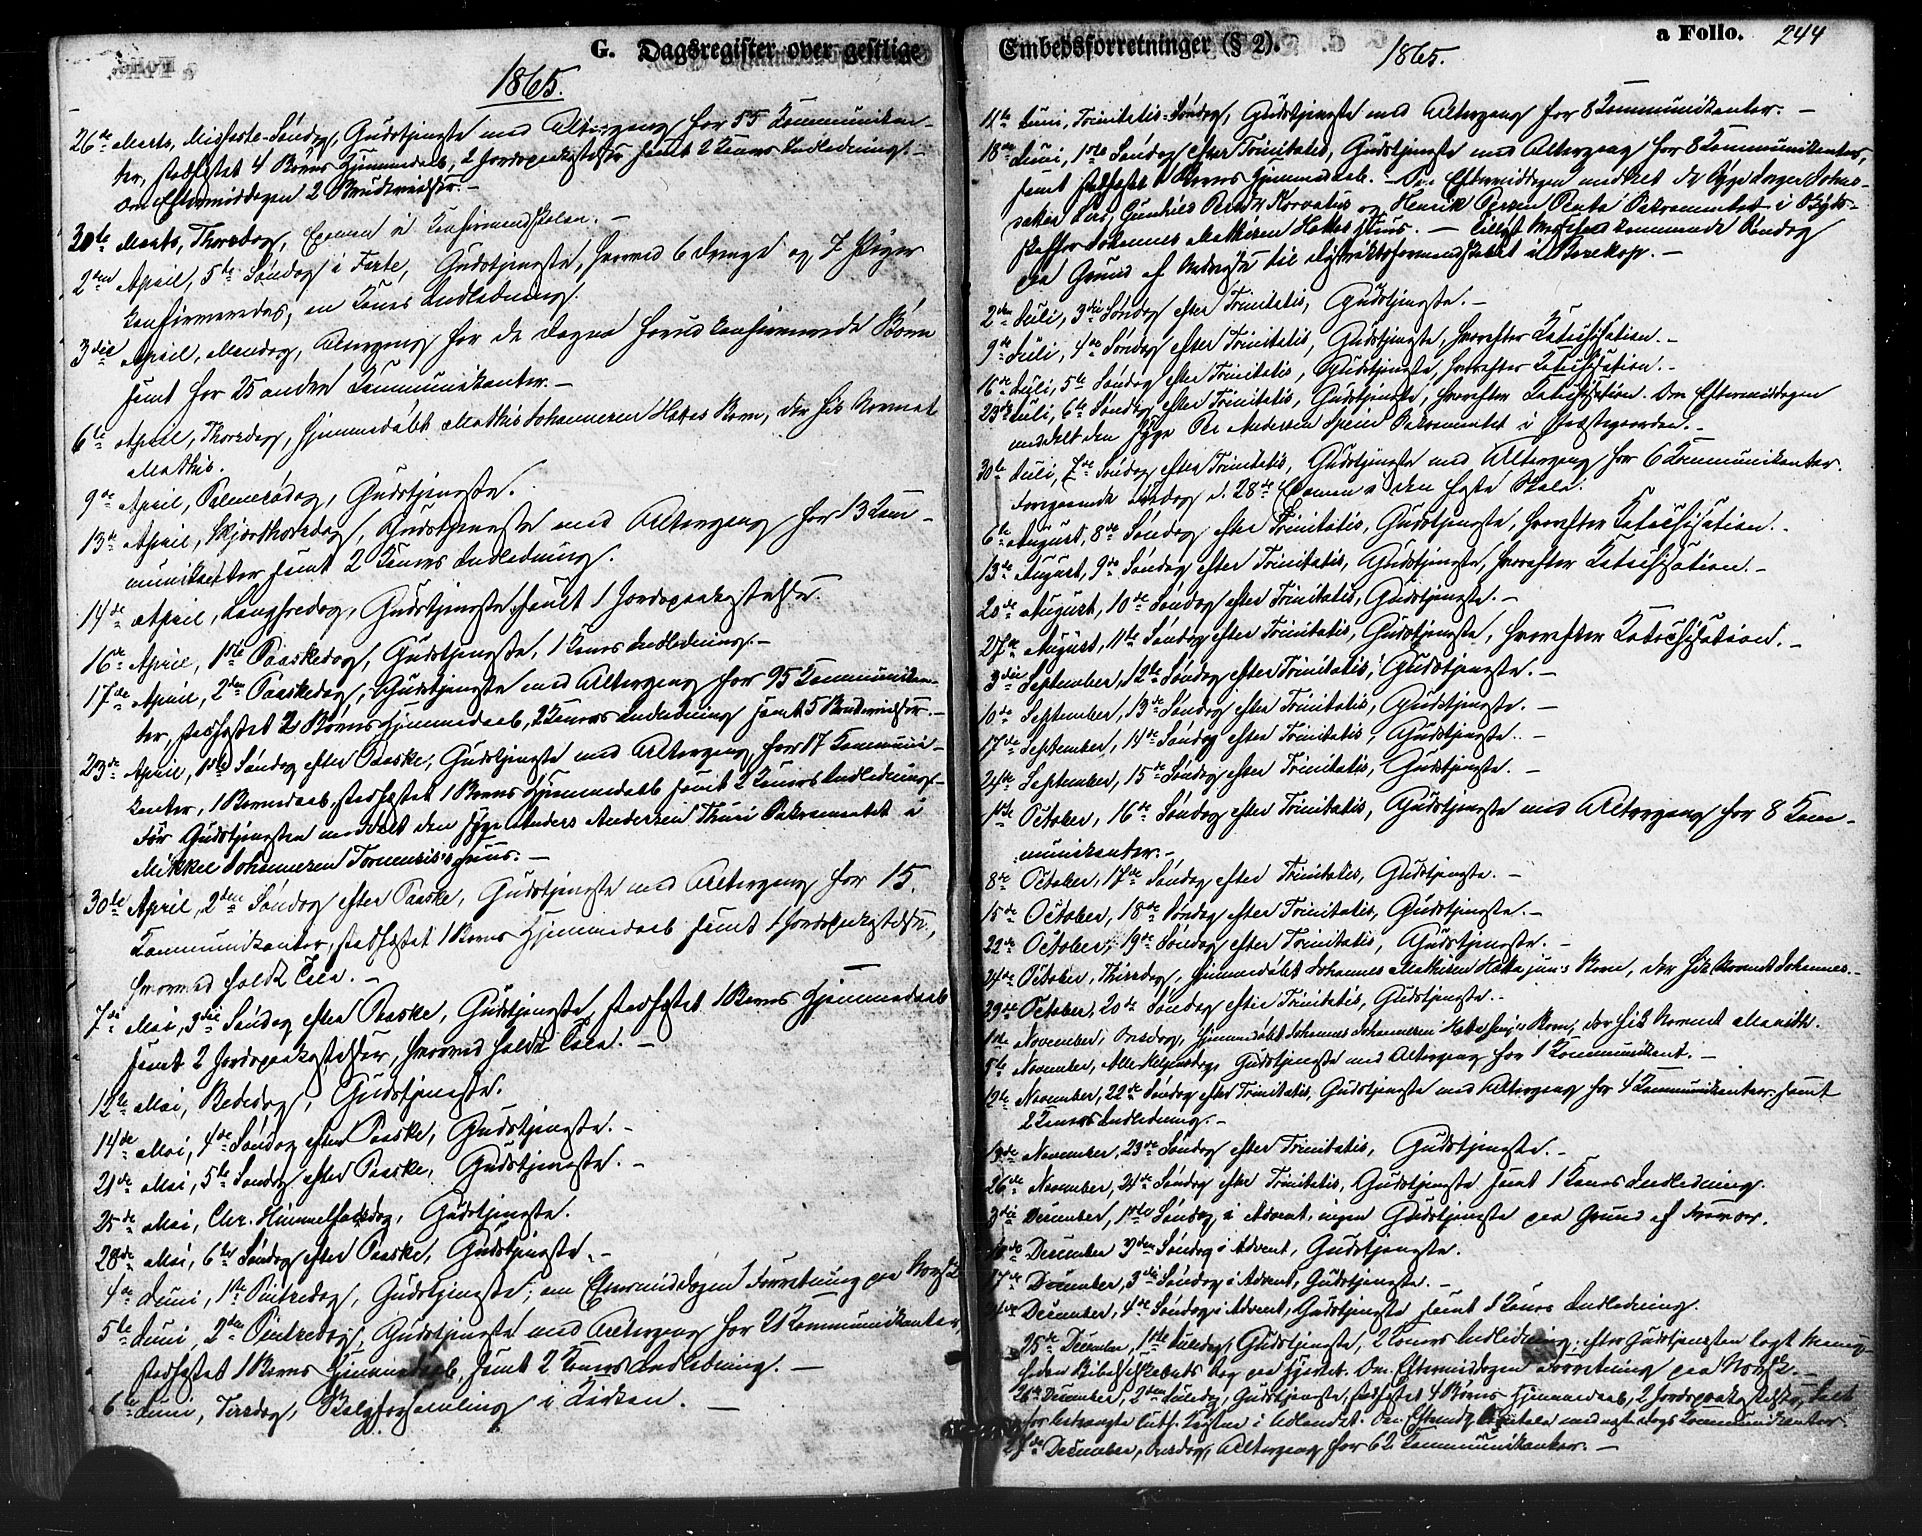 G. Dagsregister over gestlige
1865.
26de Marts, Midfaste-Søndag, Gudstjeneste med Altergang for 55 Kommunikan-
ter, stadfæstet 4 Børns Hjemmedaab, 2 Jordpaakastelser samt 2 Koners Indledning. –
Om Eftermiddagen 2 Brudevielser. –
30te Marts, Thorsdag, Examen i Konfirmandskolen. –
2den April, 5te Søndag i Faste, Gudstjeneste, hvorved 6 Drenge og 7 Piger
konfirmeredes, en Kones Indledning.
3die April, Mandag, Altergang for de Dagen forud konfirmerede Børn
samt for 25 andre Kommunikanter. –
6te April, Thorsdag, hjemmedøbt Mathis Johannesen Hættas Barn, der fik Navnet
Mathis.
9de April, Palmesødag, Gudstjeneste.
13de April, Skjærthorsdag, Gudstjeneste med Altergang for 13 Kom-
munikanter samt 2 Koners Indledning.
14de April, Langfredag, Gudstjeneste samt 1 Jordpaakastelse
16de April, 1ste Paaskedag, Gudstjeneste, 1 Kones Indledning. –
17de April, 2den Paaskedag, Gudstjeneste med Altergang for 95 Kommunikan-
ter, stadfæstet 2 Børns Hjemmedaab, 2 Koners Indledning samt 5 Brudevielser. –
23de April, 1ste Søndag efter Paaske, Gudstjeneste med Altergang for 17 Kommuni-
kanter, 1 Barnedaab, stadfæstet 1 Barns Hjemmedaab samt 2 Koners Indledning. –
Før Gudstjenesten meddelt den syge Anders Andersen Thuri Sakramentet i
Mikkel Johannesen Tornensis's Huus. –
30te April, 2den Søndag efter Paaske, Gudstjeneste med Altergang for 15.
Kommunikanter, stadfæstet 1 Barns Hjemmedaab samt 1 Jordpaakastelse,
hvorved holdt Tale. –
7de Mai, 3die Søndag efter Paaske, Gudstjeneste, stadfæstet 1 Barns Hjemmedaab
samt 2 Jordpaakastelser, hvorved holdt Tale. –
12te Mai, Bededag, Gudstjeneste.
14de Mai, 4de Søndag efter Paaske, Gudstjeneste. –
21de Mai, 5te Søndag efter Paaske, Gudstjeneste. –
25de Mai, Chr. Himmelfartsdag, Gudstjeneste.
28de Mai, 6te Søndag efter Paaske, Gudstjeneste. –
4de Juni, 1ste Pintsedag, Gudstjeneste; om Eftermiddagen Forretning paa Norsk
5te Juni, 2den Pintsedag, Gudstjeneste med Altergang for 21 Kommunikanter,
stadfæstet 1 Barns Hjemmedaab, samt 2 Koners Indledning. –
6te Juni, Tirsdag, Valgforsamling i Kirken. –
Embedsforretninger (§ 2).
a Folio. 244
1865.
11te Juni, Trinitatis-Søndag, Gudstjeneste med Altergang for 8 Kommunikanter. –
18de Juni, 1ste Søndag efter Trinitatis, Gudstjeneste med Altergang for 8 Kommunikanter,
samt stadfæstet 1 Barns Hjemmedaab. – Om Eftermiddagen meddelt de syge
og Henrik Persen Sakramentet i
Johannes Mathisen Hættas Huus. –
paa Grund af
2den Juli, 3die Søndag efter Trinitatis, Gudstjeneste. –
9de Juli, 4de Søndag efter Trinitatis, Gudstjeneste, hvorefter Katechisation. –
16de Juli, 5te Søndag efter Trinitatis, Gudstjeneste, hvorefter Katechisation. –
23de Juli, 6te Søndag efter Trinitatis, Gudstjeneste, hvorefter Katechisation. Om Eftermiddagen
meddelt den syge Per Andersen Spein Sakramentet i Præstegaarden. –
30te Juli, 7de Søndag efter Trinitatis, Gudstjeneste med Altergang for 6 Kommunikanter.
Foregaaende d. 28de Examen i den faste Skole.
6te August, 8de Søndag efter Trinitatis, Gudstjeneste, hvorefter Katechisation. –
13de August, 9de Søndag efter Trinitatis, Gudstjeneste, hvorefter Katechisation. –
20de August, 10de Søndag efter Trinitatis, Gudstjeneste. –
27de August, 11te Søndag efter Trinitatis, Gudstjeneste, hvorefter Katechisation. –
3die September, 12te Søndag efter Trinitatis, Gudstjeneste. –
10de September, 13de Søndag efter Trinitatis, Gudstjeneste. –
17de September, 14de Søndag efter Trinitatis, Gudstjeneste. –
24de September, 15de Søndag efter Trinitatis, Gudstjeneste. –
1ste October, 16de Søndag efter Trinitatis, Gudstjeneste med Altergang for 8 Kom-
munikanter. –
8de October, 17de Søndag efter Trinitatis, Gudstjeneste. –
15de October, 18de Søndag efter Trinitatis, Gudstjeneste. –
22de October, 19de Søndag efter Trinitatis, Gudstjeneste. –
24de October, Thirsdag, hjemmedøbt Johannes Mathisen Hætta jun:s Barn, der fik Navnet Johannes. –
29de October, 20de Søndag efter Trinitatis, Gudstjeneste. –
1ste November, Onsdag, hjemmedøbt Johannes Johannesen Hættas Barn, der fik Navnet
5te November, Alle-Helgensdag, Gudstjeneste med Altergang for 1 Kommunikant. –
12te November, 22de Søndag efter Trinitatis, Gudstjeneste med Altergang for 4 Kommunikanter samt
2 Koners Indledning. –
19de November, 23de Søndag efter Trinitatis, Gudstjeneste. –
26de November, 24de Søndag efter Trinitatis, Gudstjeneste samt 1 Kones Indledning.
3die December, 1ste Søndag i Advent, ingen Gudstjeneste paa Grund af
10de December 2den Søndag i Advent, Gudstjeneste.
17de December, 3die Søndag i Advent, Gudstjeneste. –
24de December, 4de Søndag i Advent, Gudstjeneste samt 1 Kones Indledning.
25de December, 1ste Juledag, Gudstjeneste, 2 Koners Indledning; efter Gudstjenesten lagt Menig-
heden Bibelselskabets Sag paa Hjertet. Om Eftermiddagen Forretning paa Norsk. –
26de December, 2den Juledag, Gudstjeneste, stadfæstet 4 Børns Hjemmedaab, 2 Jordpaakastelser,
for luth. i Udlandet. Om Kommunikanter.
27de December, Onsdag, Altergang for 62 Kommunikanter. –